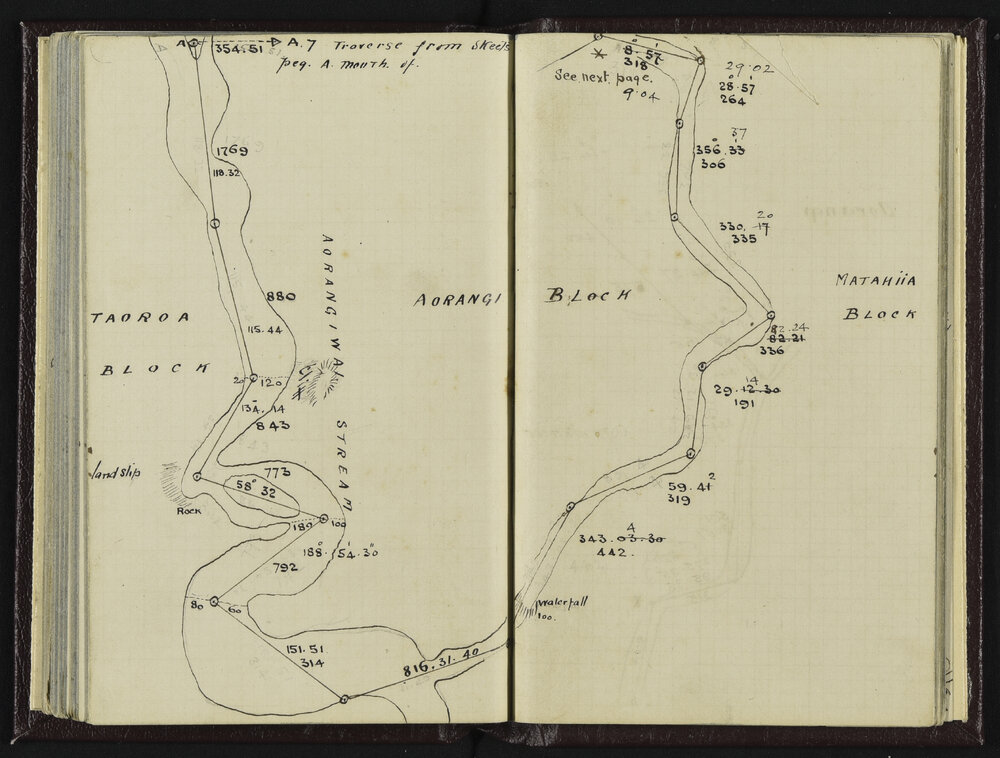 A 354.51 A.7 Traverse from Skeets
peg. A. mouth of.
1769
118.32
AORANGIWAI STREAM
880
115.44
TAOROA
BLOCK
20 120
134°.14
843
landslip
Rock
773
58° 32
189 100
188°.54'.30"
792
80 60
151.51
314
816.31.40
AORANGI BLOCK
8°.57'
318
See next page.
9.04
29.02
28°.51'
264
37
356°.33
306
20
330.17
335
MATAHIIA
BLOCK
82.24
82.21
336
14
29.12.30
191
2
59.41
319
4
343.03.30
442.
Waterfall
100.